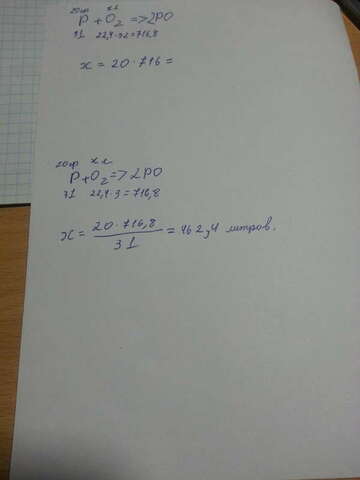 20гр x л
P + O₂ => 2PO
31 22,4·32=716,8
x = 20·716 =
20гр x л
P + O₂ => 2PO
31 22,4·3=716,8
x = 20·716,8 / 31 = 462,4 литров.